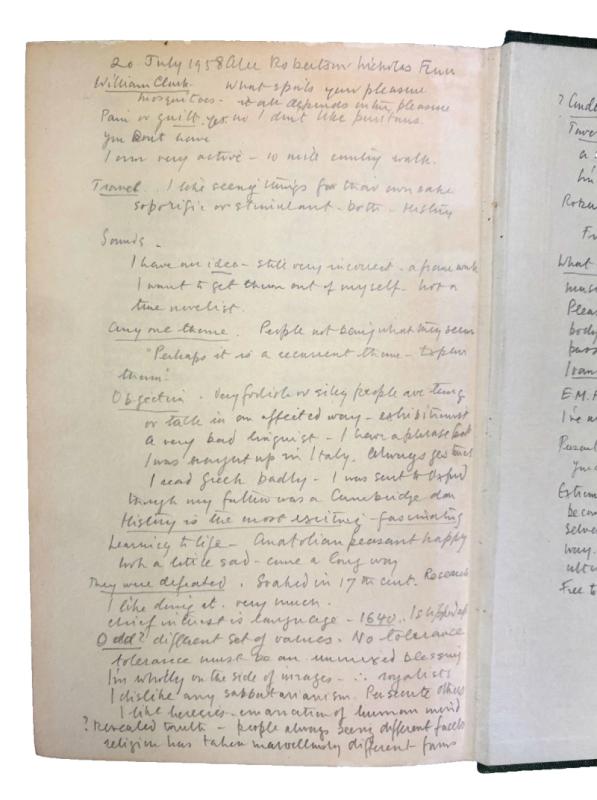 20 July 1958 Alec Robertson Nicholas Fenn
William Clark. What spoils your pleasure
mosquitoes - it all depends on the pleasure
Pain or guilt. yes. no I don't like puritans.
you don't have
I am very active - 10 mile country walk.
Travel. I like seeing things for their own sake
soporific or stimulant - both - History
Sounds -
I have an idea - still very incorrect - a frame work
I want to get them out of myself. Not a
true novelist.
Any one theme. People not being what they seem
"Perhaps it is a recurrent theme -
them"
Objection. Very foolish or silly people are
or talk in an affected way - exhibitionist
A very bad linguist - I have a phrase book
I was brought up in Italy. Always get
I read Greek badly - I was sent to Oxford
though my father was a Cambridge don
History is the most exciting - fascinating
Learning to life - Anatolian peasant happy
look a little sad - came a long way
They were defeated. Soaked in 17th cent. Research
I like doing it. very much.
chief interest is language - 1640.. I
Odd? different set of values. No tolerance
tolerance must be an unmixed blessing
I'm wholly on the side of mirages - ∴ royalists
I dislike any sabbatarianism. Persecute others
I like heresies - emanation of human mind
? Revealed truth - people always seeing different facets
religion has taken marvellously different forms
?
Travel
a
What
Pleas
body
pass
I
E.M.F
I've
Present
you
Extrem
beco
selves
way.
Free to